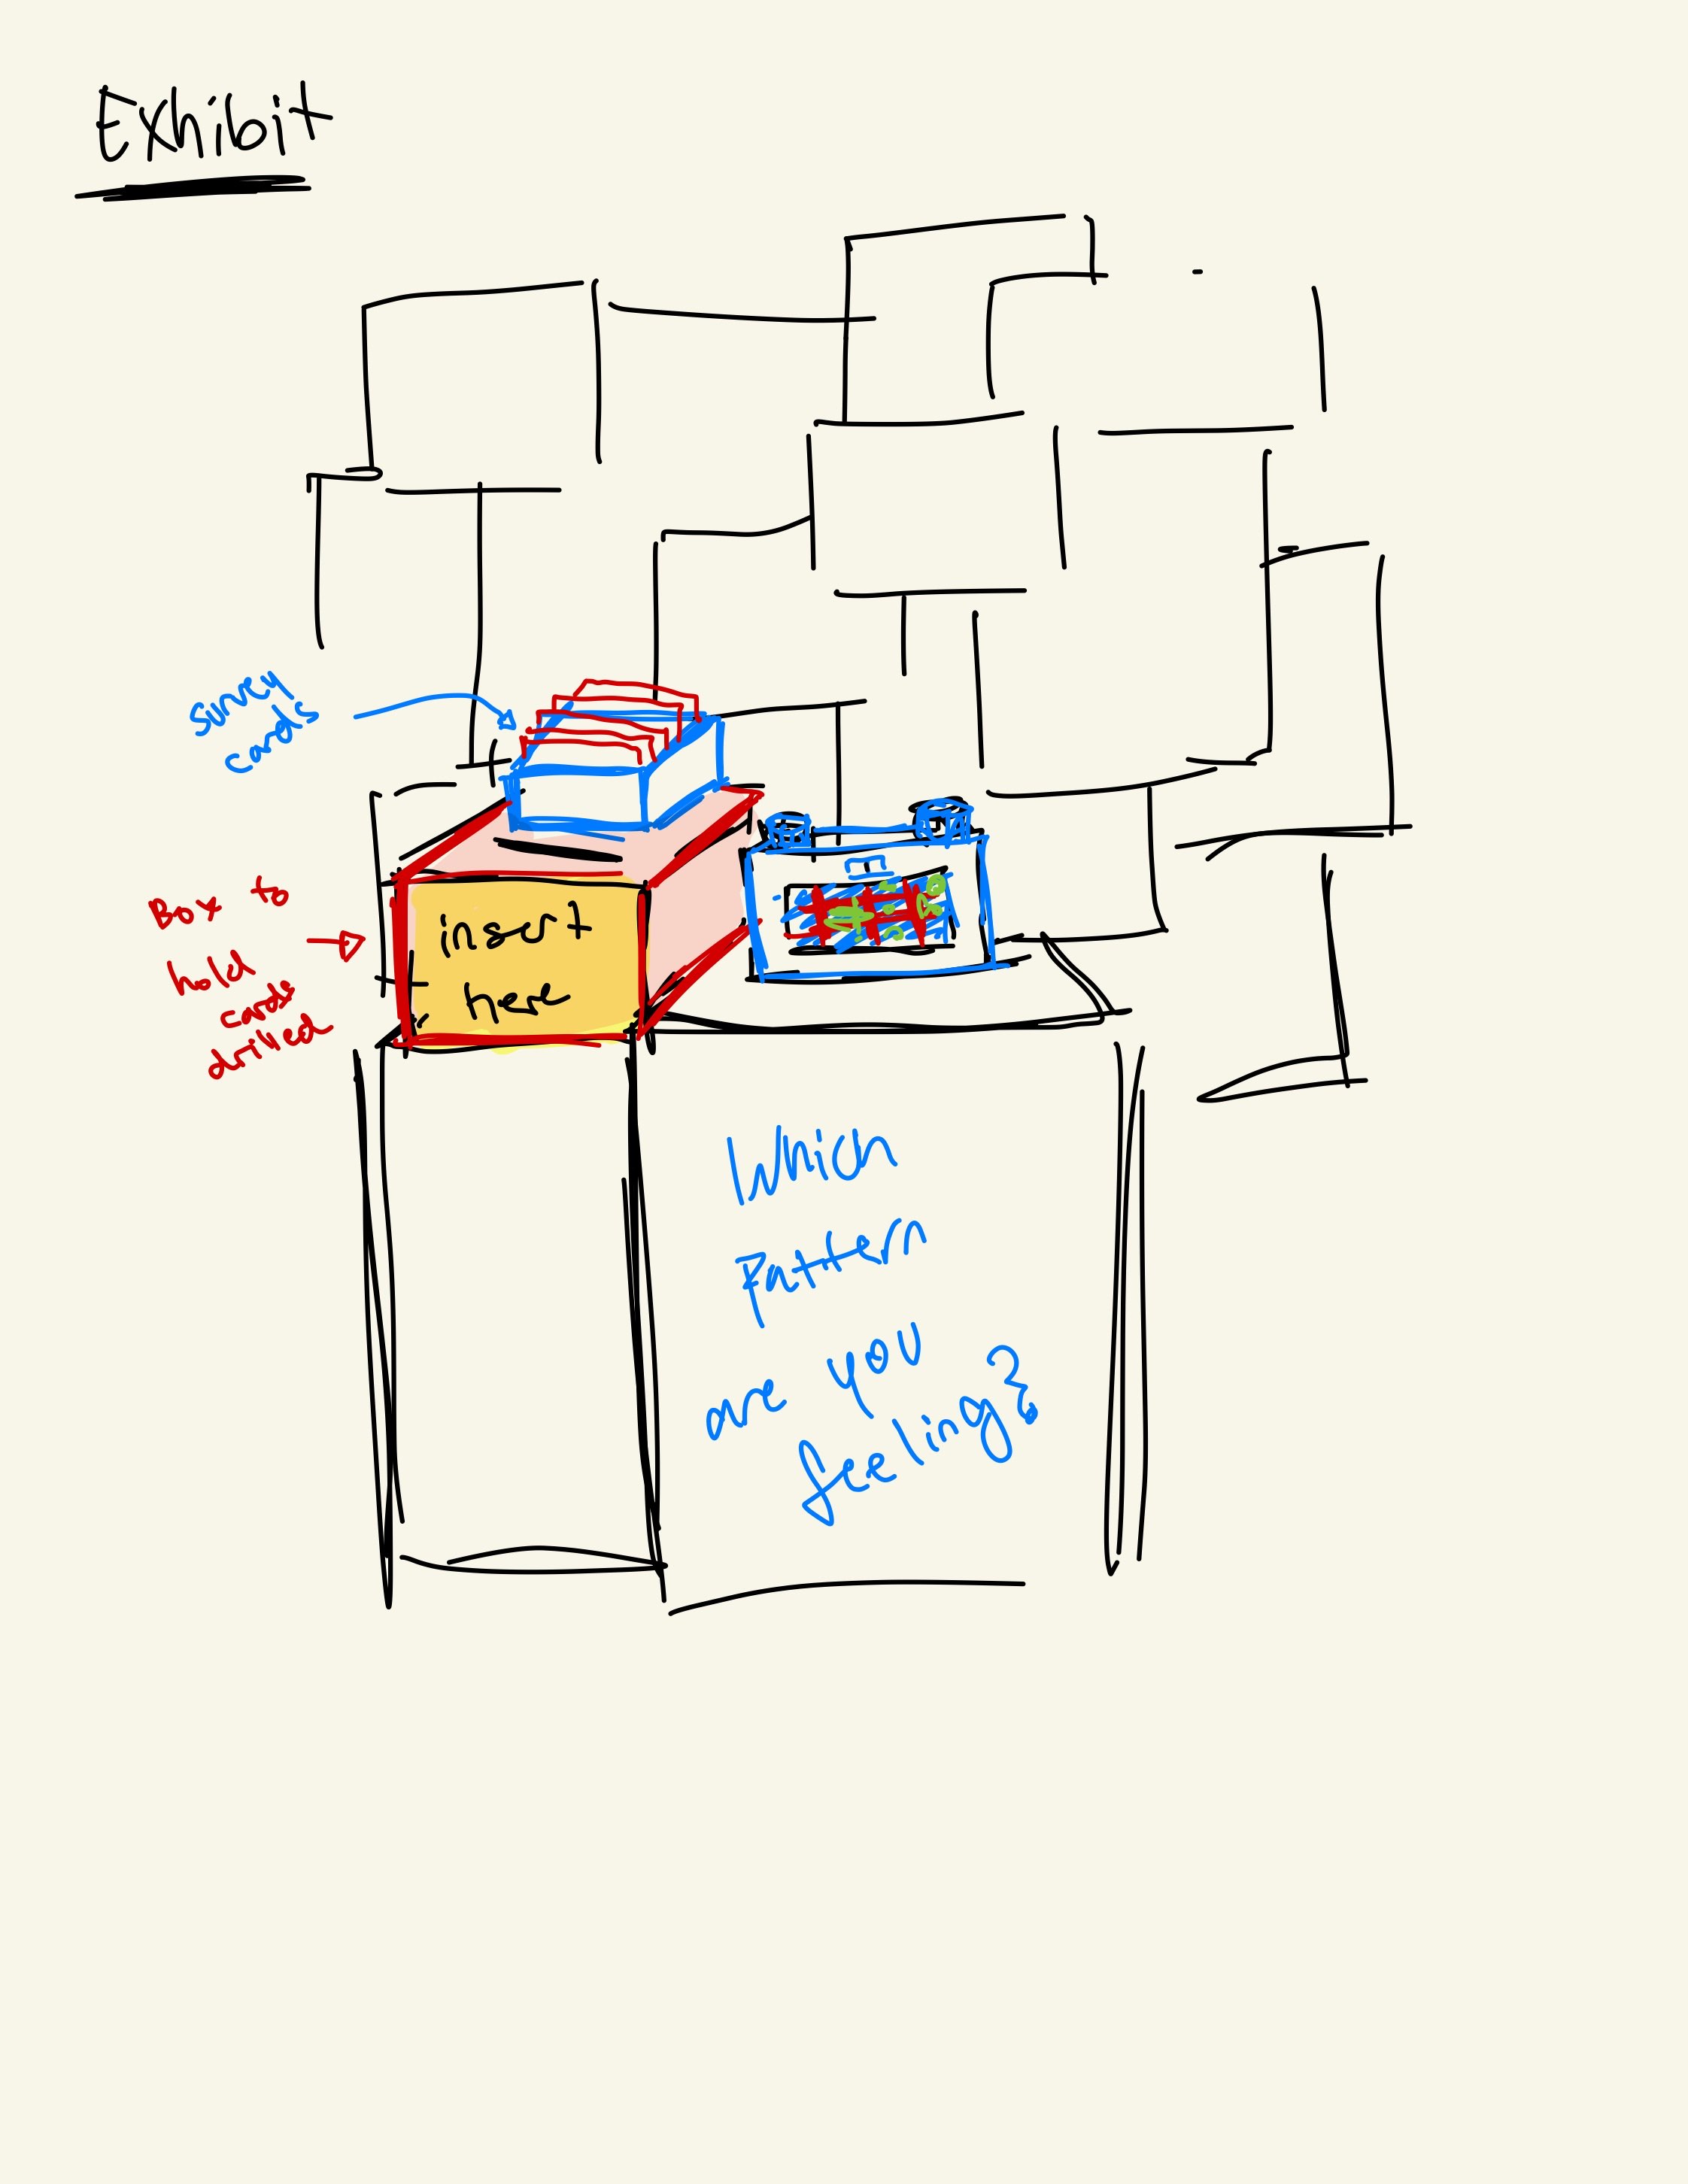 Exhibit
survey
cards
Box to
hold
cards
drilled
insert
here
Which
Pattern
are you
feeling?